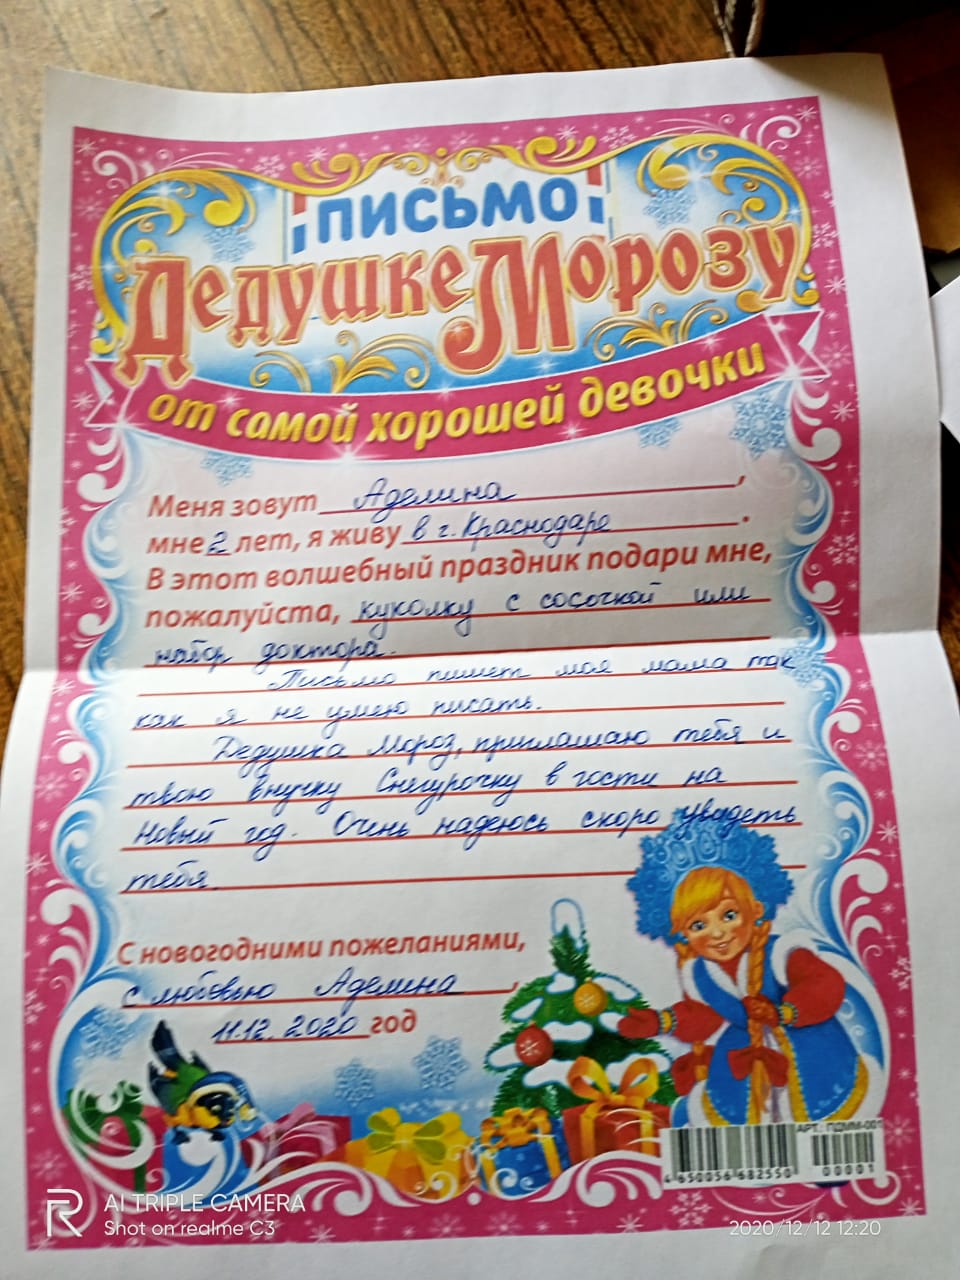 ПИСЬМО
Дедушке Морозу
от самой хорошей девочки
Меня зовут Аделина,
мне 2 лет, я живу в г. Краснодаре.
В этот волшебный праздник подари мне,
пожалуйста, куколку с сосочкой или
набор доктора.
Письмо пишет моя мама так
как я не умею писать.
Дедушка Мороз, приглашаю тебя и
твою внучку Снегурочку в гости на
Новый год. Очень надеюсь скоро увидеть
тебя.
С новогодними пожеланиями,
с любовью Аделина,
11.12.2020 год
АРТ.: ПДММ-001
4 650056 682550
00001
R
AI TRIPLE CAMERA
Shot on realme C3
2020/12/12 12:20